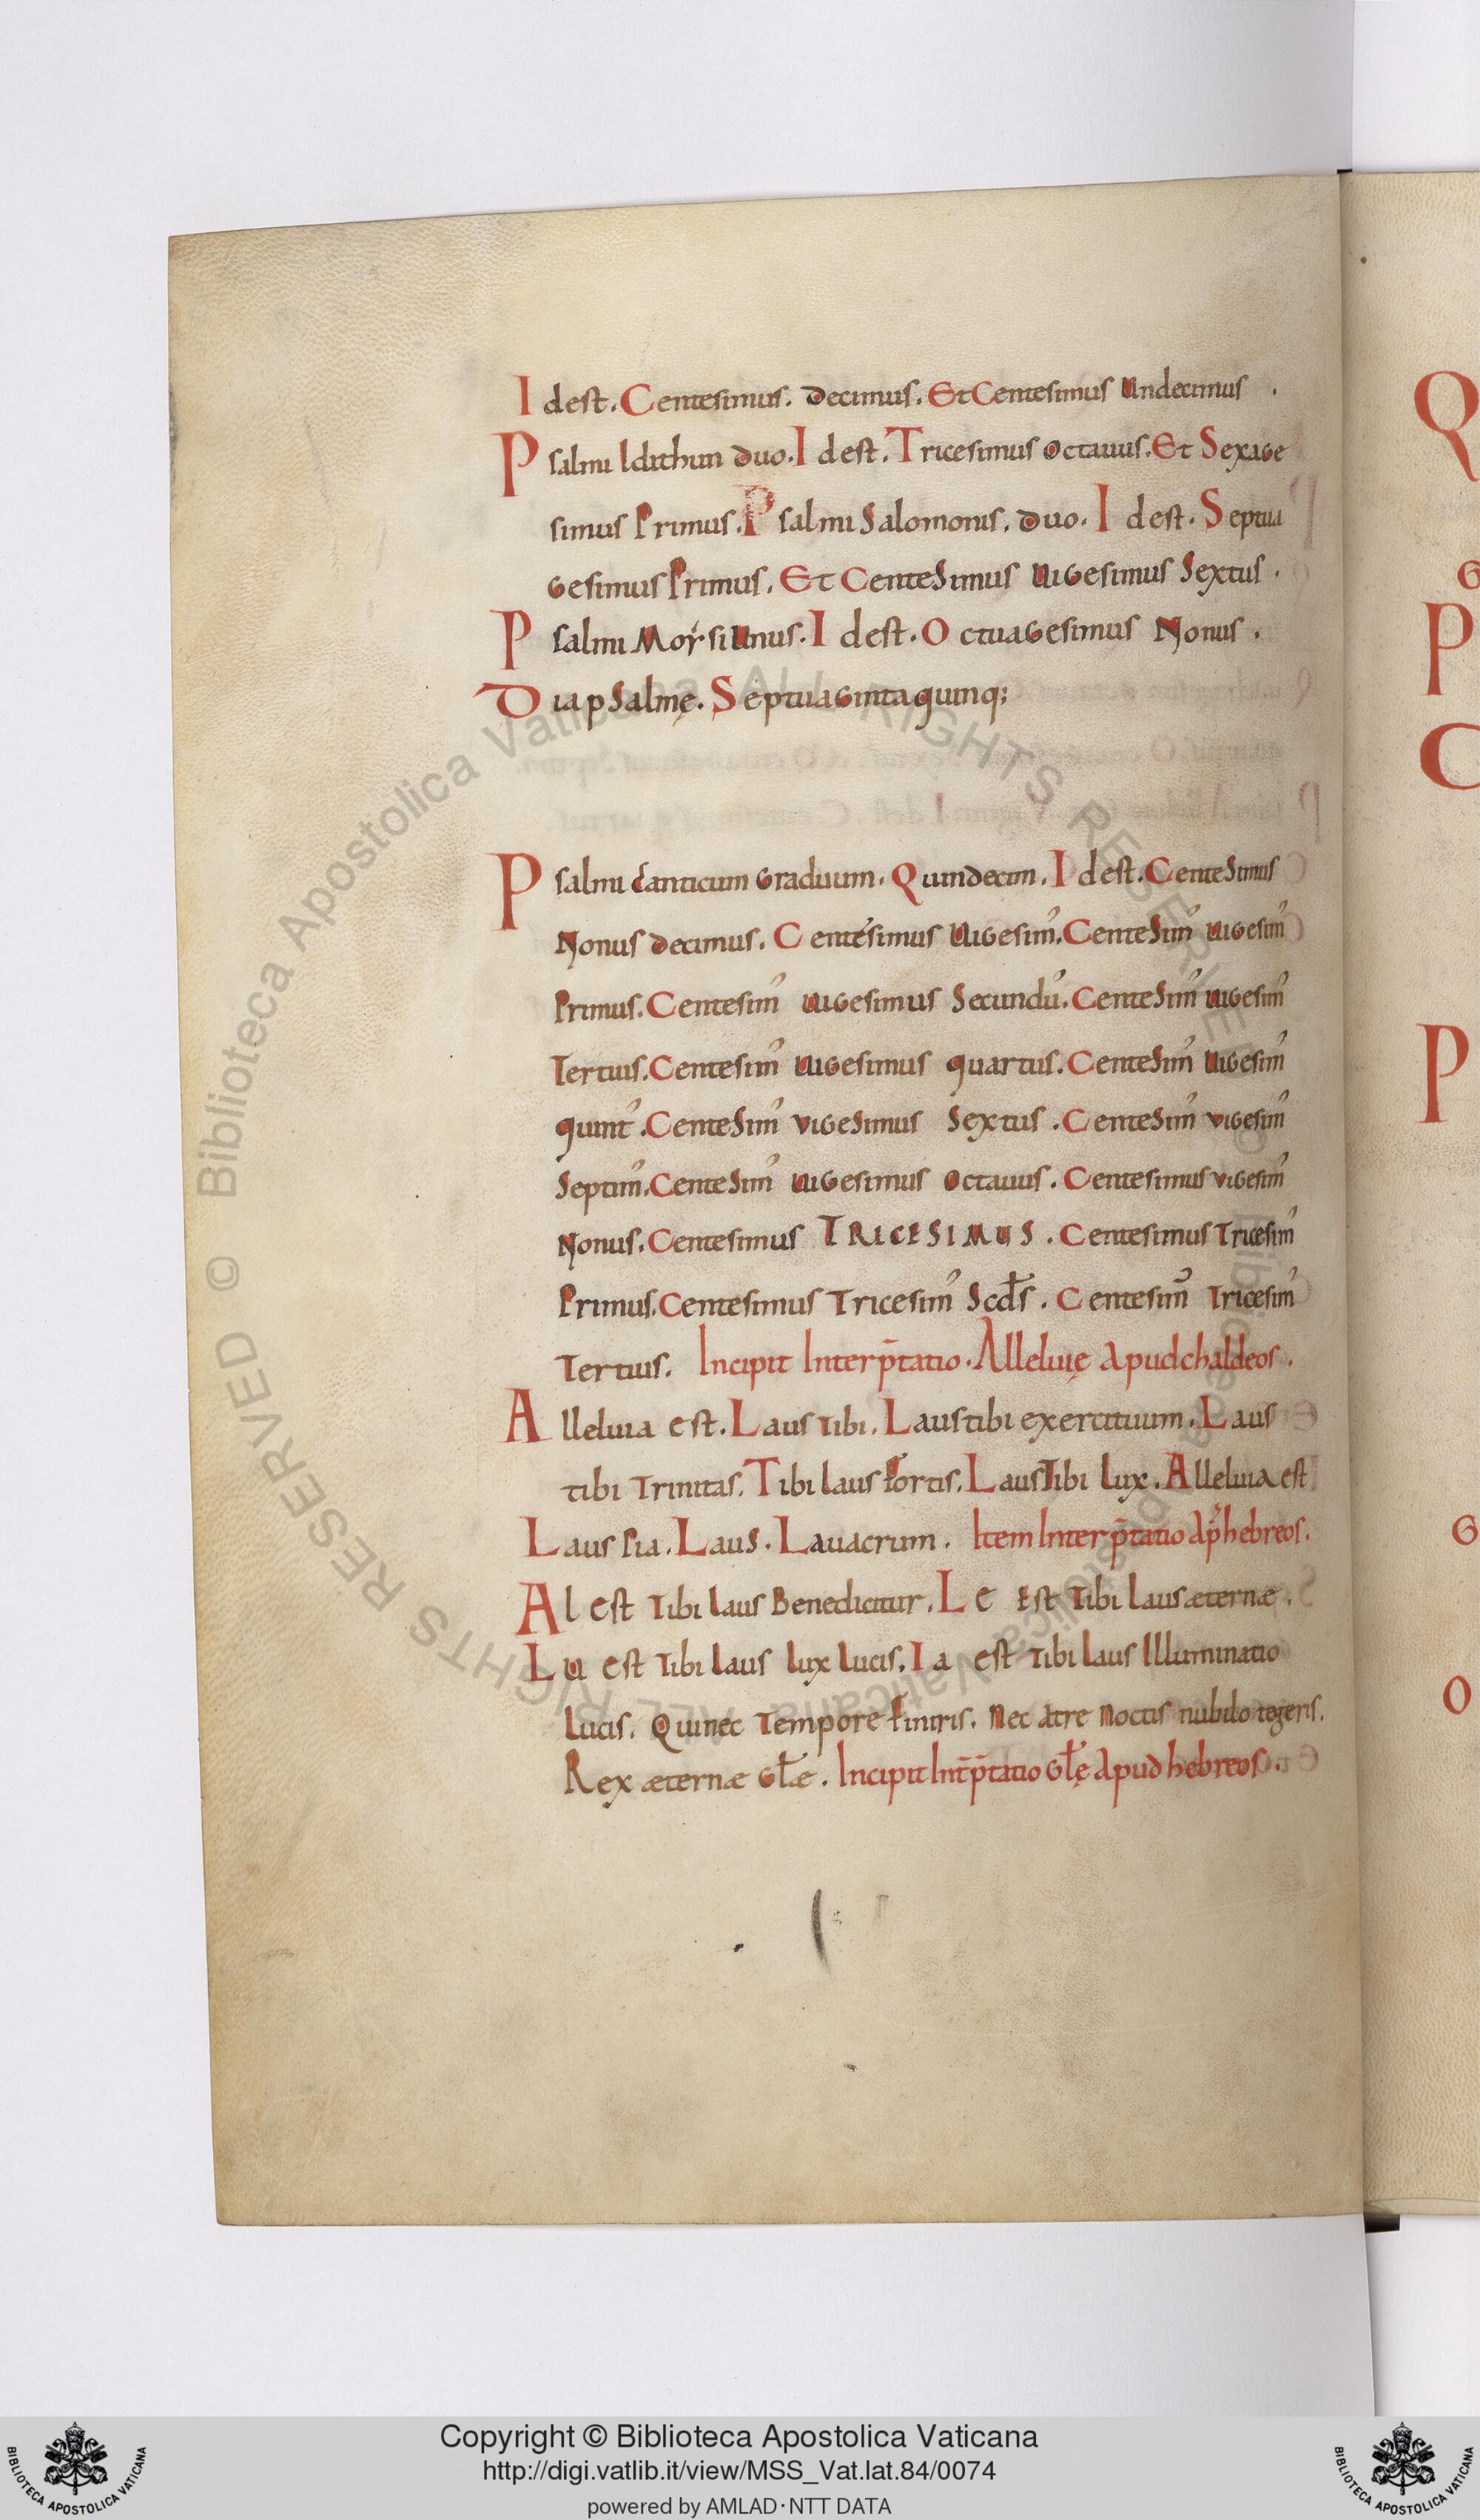 I dest. Centesimus. decimus. Et Centesimus Undecimus .
Psalmi Idithun duo. I dest. Tricesimus octauus. Et Sexage
simus Primus. Psalmi Salomonis. duo. I dest. Septua
gesimus Primus. Et Centesimus Uigesimus Sextus .
Psalmi Moysi Unus. I dest. Octuagesimus Nonus .
Diapsalmę. Septuaginta quinq;
Psalmi Canticum Graduum. Quindecim. I dest. Centesimus
Nonus decimus. Centesimus Uigesim̓. Centesim̓ Uigesim̓
Primus. Centesim̓ Uigesimus Secundu̓. Centesim̓ Uigesim̓
Tertius. Centesim̓ Uigesimus quartus. Centesim̓ Uigesim̓
quint̓. Centesim̓ vigesimus Sextus . Centesim̓ vigesim̓
Septim̓. Centesim̓ Uigesimus octauus . Centesimus vigesim̓
Nonus. Centesimus TRICESIMUS . Centesimus Tricesim̓
Primus. Centesimus Tricesim̓ Scd̄s . Centesim̓ Tricesim̓
Tertius. Incipit Interp̄tatio . Alleluię Apud chaldeos .
Alleluia est. Laus tibi. Laus tibi exercituum. Laus
tibi Trinitas. Tibi laus fortis. Laus Tibi lux. Alleluia est
Laus Pia. Laus. Lauacrum. Item Interp̄tatio Ap̓ hebreos.
Al est Tibi laus Benedicitur. Le Est Tibi laus æternæ .
Lu est Tibi laus lux lucis. Ia est Tibi laus Illuminatio
lucis. Qui nec Tempore finiris. Nec Atre Noctis nubilo tegeris.
Rex æternæ gl̄æ . Incipit Int̄p̄tatio gl̄ę Apud hebreos .
Q
G
P
C
P
G
O
© Biblioteca Apostolica Vaticana ALL RIGHTS RESERVED © Biblioteca Apostolica Vaticana ALL RIGHTS RESERVED
Copyright © Biblioteca Apostolica Vaticana
http://digi.vatlib.it/view/MSS_Vat.lat.84/0074
powered by AMLAD·NTT DATA
BIBLIOTECA APOSTOLICA VATICANA
BIBLIOTECA APOSTOLICA VATICANA